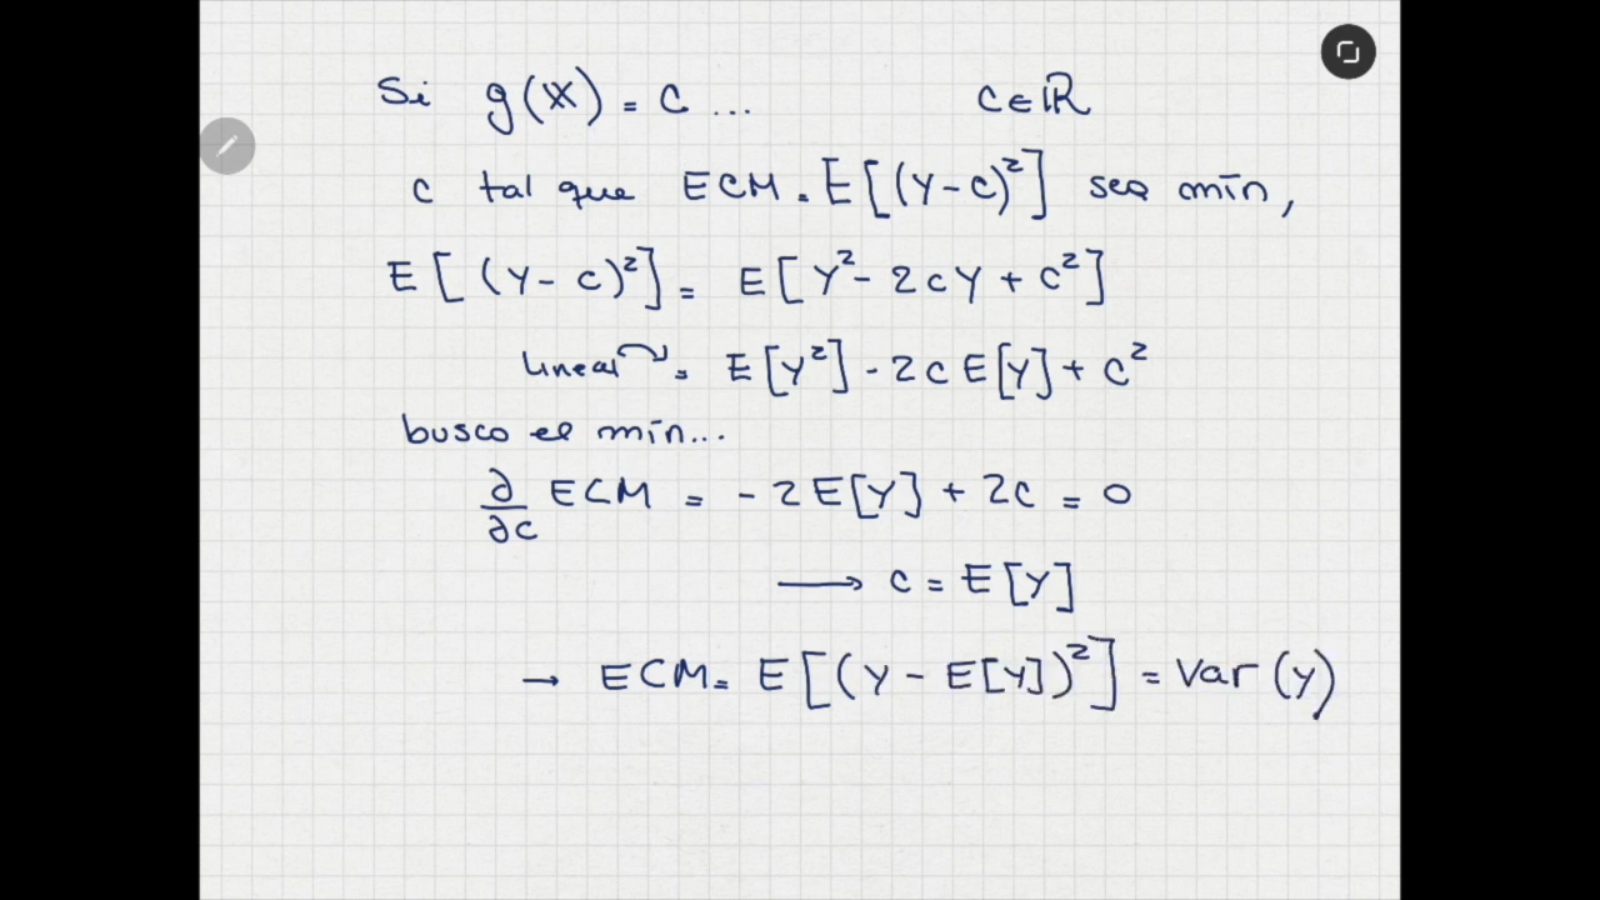 Si g(X) = c ... c ∈ ℝ
c tal que ECM = E[(Y - c)²] sea mín,
E[(Y - c)²] = E[Y² - 2cY + c²]
lineal = E[Y²] - 2c E[Y] + c²
busco el mín...
∂/∂c ECM = -2E[Y] + 2c = 0
⟶ c = E[Y]
→ ECM = E[(Y - E[Y])²] = Var(Y)